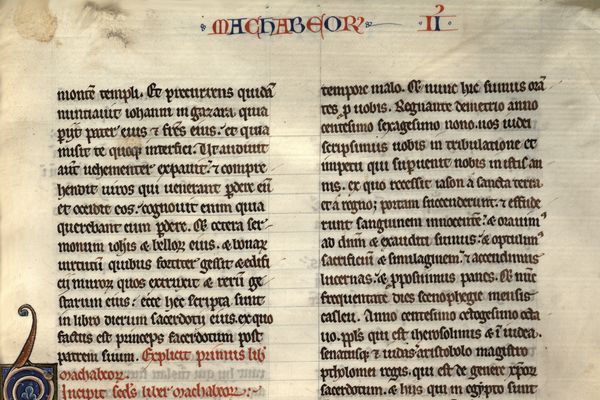 MACHABEOR II
montē templi. Et precurrens quidā
nuntiavit iohanni in gazara. quia
p̲iit pater eius ⁊ frēs eius. et quia
misit te quoq; interfici. Ut audivit
aut̄ vehementer expavit. ⁊ compre
hendit viros qui venerant p̲dere eū
et occidit eos. cognovit enim quia
querebant eum p̲dere. Et cetera ser
monum iohīs ⁊ belloꝝ eius. ⁊ bonaꝝ
virtutū quibus fortiter gessit ⁊ edifi
cii muroꝝ quos extruxit ⁊ rerū ge
starum eius. ecce hec scripta sunt
in libro dierum sacerdotii eius. ex quo
factus est princeps sacerdotum post
patrem suum. Explicit primus lib̄
machabeoꝝ.
Incipit scd̄s liber machabeoꝝ.
tempore malo. Et nunc hic sumus orā
tes p̲ vobis. Regnante demetrio anno
centesimo sexagesimo nono. nos iudei
scripsimus vobis in tribulatione et
impetu qui sup̲venit nobis in istis an
nis. ex quo recessit iason a sancta terra
et a regno; portam succenderunt. ⁊ effude
runt sanguinem innocentē. ⁊ oravimꝰ
ad dn̄m ⁊ exauditi sumus. ⁊ optulimꝰ
sacrificiū ⁊ similaginem. ⁊ accendimus
lucernas. ⁊ p̲posuimus panes. Et nūc
frequentate dies scenophegie mensis
casleu. Anno centesimo octogesimo octa
vo. pp̄ls qui est iherosolimis ⁊ ī iudea.
senatusq; ⁊ iudas aristobolo magistro
ptholomei regis. qui est de genere xp̄oꝝ
sacerdotum. ⁊ hiis qui in egypto sunt